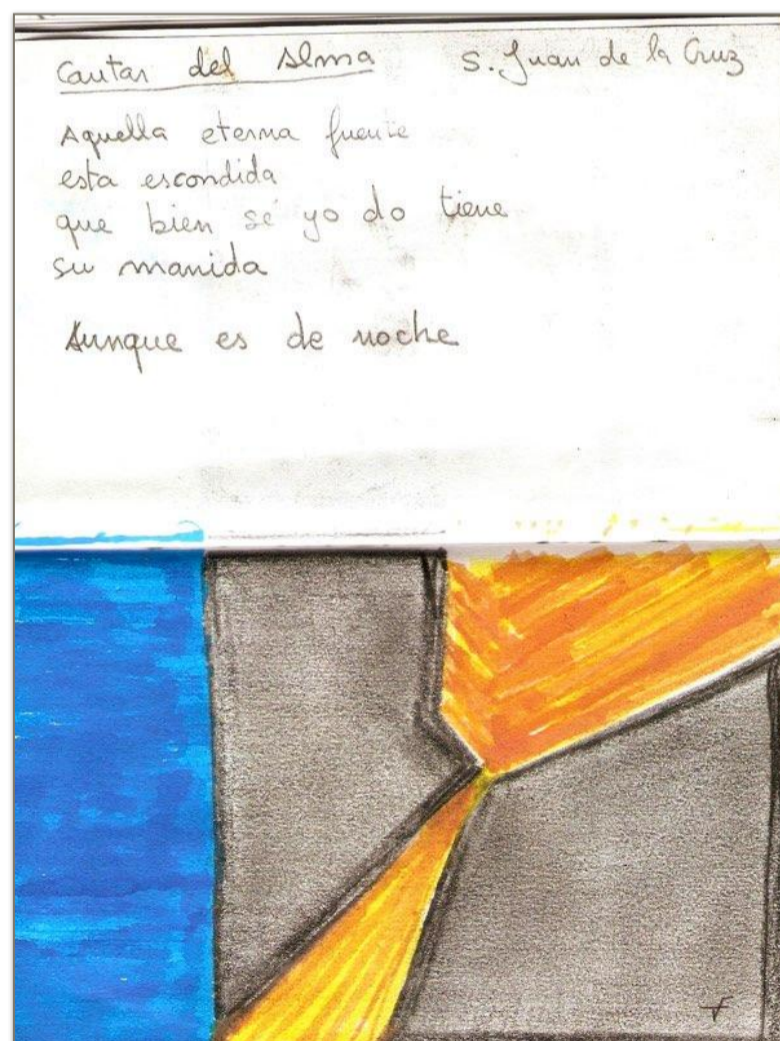 Cantar del Alma S. Juan de la Cruz
Aquella eterna fuente
esta escondida
que bien sé yo do tiene
su manida
Aunque es de noche